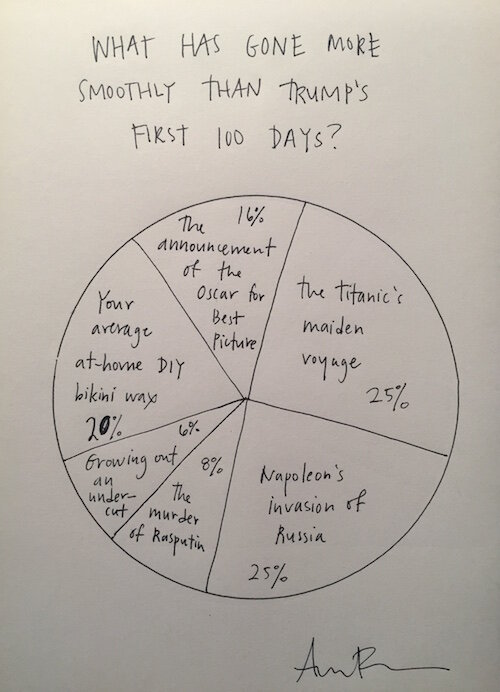 WHAT HAS GONE MORE
SMOOTHLY THAN TRUMP'S
FIRST 100 DAYS?
16%
The
announcement
of the
Oscar for
Best
Picture
the Titanic's
maiden
voyage
25%
Your
average
at-home DIY
bikini wax
20%
6%
Growing out
an
under-
cut
8%
The
murder
of Rasputin
Napoleon's
invasion of
Russia
25%